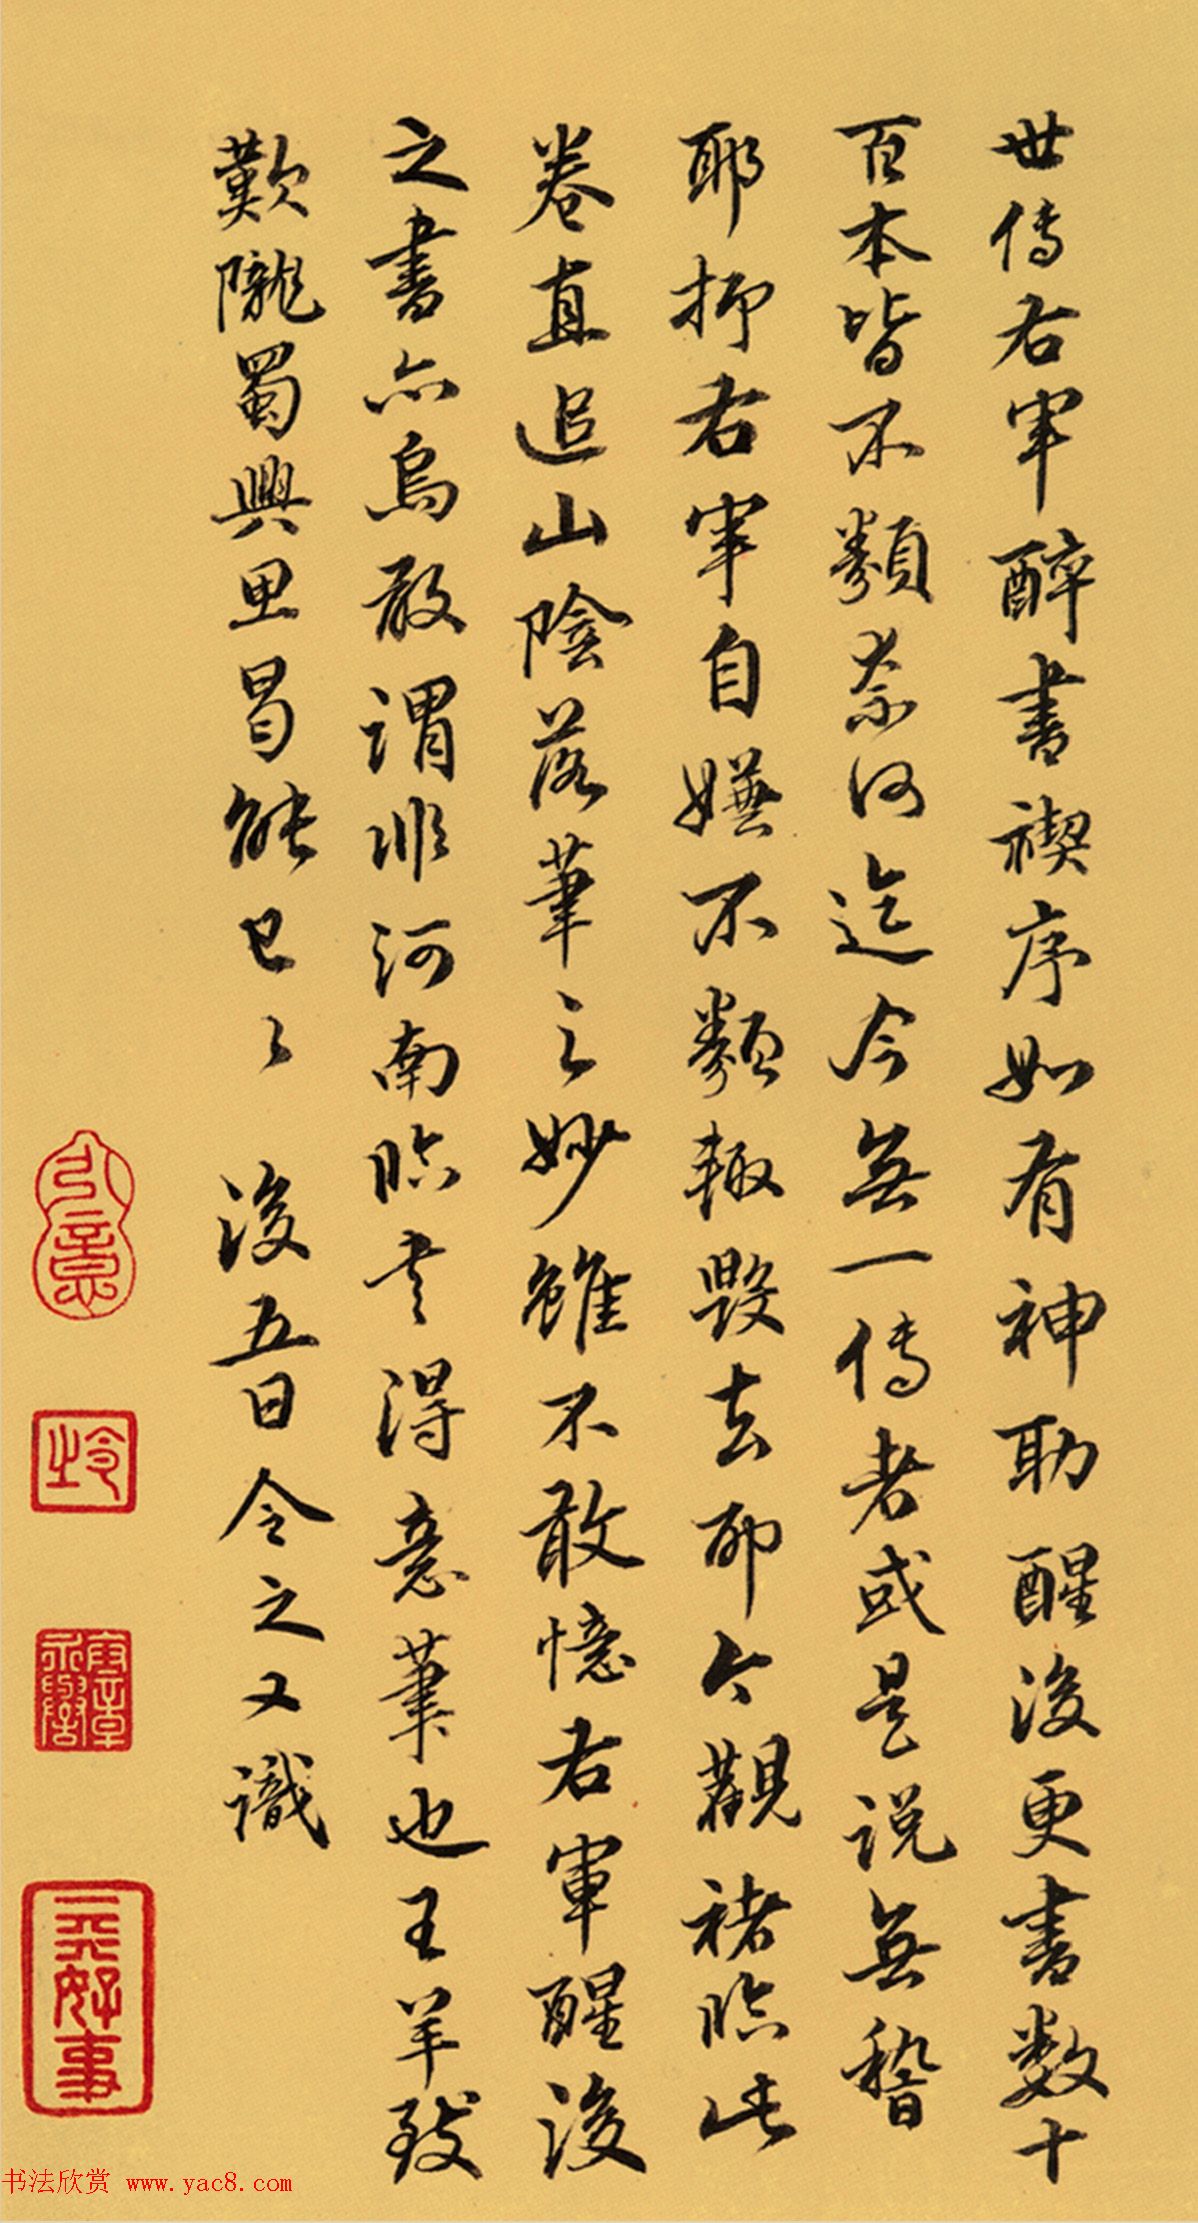 世傳右軍醉書禊序如有神助醒後更書數十
百本皆不類奈何迄今無一傳者或是說無稽
耶抑右軍自嫌不類輒毀去耶今觀褚臨此
卷直追山陰落筆之妙雖不敢憶右軍醒後
之書亦烏敢謂非河南臨書得意筆也王羊致
歎隴蜀興思曷能已々 後五日令之又識
一元好事
书法欣赏 www.yac8.com